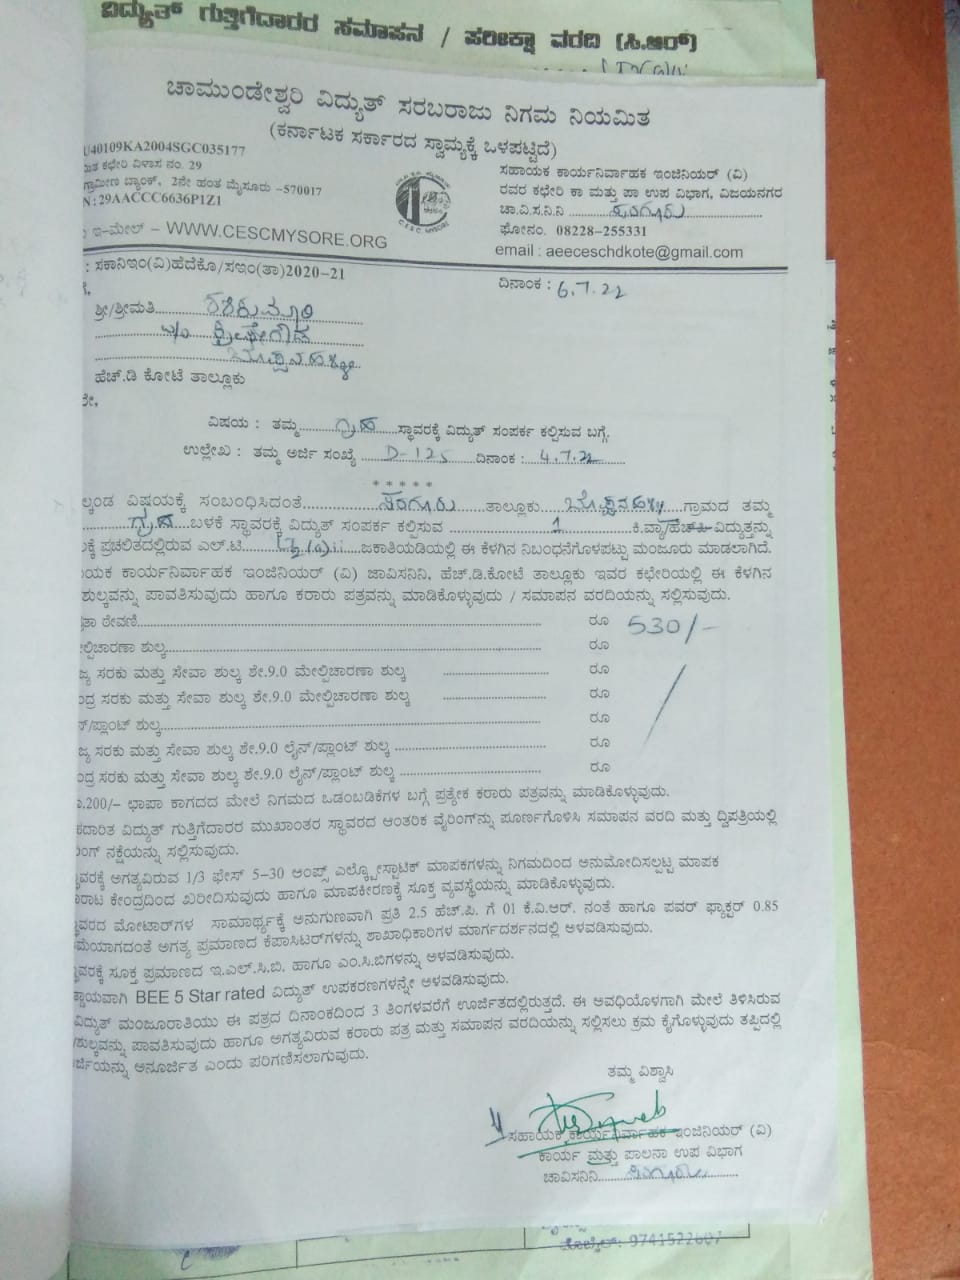 ವಿದ್ಯುತ್ ಗುತ್ತಿಗೆದಾರರ ಸಮಾಪನ / ಪರೀಕ್ಷಾ ವರದಿ (ಸಿ.ಆರ್)
ಚಾಮುಂಡೇಶ್ವರಿ ವಿದ್ಯುತ್ ಸರಬರಾಜು ನಿಗಮ ನಿಯಮಿತ
(ಕರ್ನಾಟಕ ಸರ್ಕಾರದ ಸ್ವಾಮ್ಯಕ್ಕೆ ಒಳಪಟ್ಟಿದೆ)
U40109KA2004SGC035177
ಕಛೇರಿ ವಿಳಾಸ ನಂ. 29
ಗ್ರಾಮೀಣ ಬ್ಯಾಂಕ್, 2ನೇ ಹಂತ ಮೈಸೂರು -570017
N : 29AACCC6636P1Z1
ಇ-ಮೇಲ್ - WWW.CESCMYSORE.ORG
C.E.S.C. MYSORE
ಸಹಾಯಕ ಕಾರ್ಯನಿರ್ವಾಹಕ ಇಂಜಿನಿಯರ್ (ವಿ)
ರವರ ಕಛೇರಿ ಕಾ ಮತ್ತು ಪಾ ಉಪ ವಿಭಾಗ, ವಿಜಯನಗರ
ಚಾ.ವಿ.ಸ.ನಿ.ನಿ ಸರಗೂರು
ಫೋನಂ. 08228-255331
email : aeeceschdkote@gmail.com
: ಸಕಾನಿಇಂ(ವಿ)ಹೆದೆಕೊ/ಸಇಂ(ತಾ)2020-21
ದಿನಾಂಕ : 6.7.22
ಶ್ರೀ/ಶ್ರೀಮತಿ
ಹೆಚ್.ಡಿ ಕೋಟೆ ತಾಲ್ಲೂಕು
ವಿಷಯ : ತಮ್ಮ ಗೃಹ ಸ್ಥಾವರಕ್ಕೆ ವಿದ್ಯುತ್ ಸಂಪರ್ಕ ಕಲ್ಪಿಸುವ ಬಗ್ಗೆ.
ಉಲ್ಲೇಖ : ತಮ್ಮ ಅರ್ಜಿ ಸಂಖ್ಯೆ D-125 ದಿನಾಂಕ : 4.7.22
* * * * *
ವಿಷಯಕ್ಕೆ ಸಂಬಂಧಿಸಿದಂತೆ ಸರಗೂರು ತಾಲ್ಲೂಕು ಗ್ರಾಮದ ತಮ್ಮ
ಗೃಹ ಬಳಕೆ ಸ್ಥಾವರಕ್ಕೆ ವಿದ್ಯುತ್ ಸಂಪರ್ಕ ಕಲ್ಪಿಸುವ 1 ಕಿ.ವ್ಯಾ/ಹೆಚ್.ಪಿ ವಿದ್ಯುತ್ತನ್ನು
ಪ್ರಚಲಿತದಲ್ಲಿರುವ ಎಲ್.ಟಿ ಜಕಾತಿಯಡಿಯಲ್ಲಿ ಈ ಕೆಳಗಿನ ನಿಬಂಧನೆಗೊಳಪಟ್ಟು ಮಂಜೂರು ಮಾಡಲಾಗಿದೆ.
ಯಕ ಕಾರ್ಯನಿರ್ವಾಹಕ ಇಂಜಿನಿಯರ್ (ವಿ) ಚಾವಿಸನಿನಿ, ಹೆಚ್.ಡಿ.ಕೋಟೆ ತಾಲ್ಲೂಕು ಇವರ ಕಛೇರಿಯಲ್ಲಿ ಈ ಕೆಳಗಿನ
ಶುಲ್ಕವನ್ನು ಪಾವತಿಸುವುದು ಹಾಗೂ ಕರಾರು ಪತ್ರವನ್ನು ಮಾಡಿಕೊಳ್ಳುವುದು / ಸಮಾಪನ ವರದಿಯನ್ನು ಸಲ್ಲಿಸುವುದು.
ತಾ ಠೇವಣಿ ರೂ 530/-
ಲ್ವಿಚಾರಣಾ ಶುಲ್ಕ ರೂ
ಜ್ಯ ಸರಕು ಮತ್ತು ಸೇವಾ ಶುಲ್ಕ ಶೇ.9.0 ಮೇಲ್ವಿಚಾರಣಾ ಶುಲ್ಕ ರೂ
ದ್ರ ಸರಕು ಮತ್ತು ಸೇವಾ ಶುಲ್ಕ ಶೇ.9.0 ಮೇಲ್ವಿಚಾರಣಾ ಶುಲ್ಕ ರೂ
ನ್/ಪ್ಲಾಂಟ್ ಶುಲ್ಕ ರೂ
ಜ್ಯ ಸರಕು ಮತ್ತು ಸೇವಾ ಶುಲ್ಕ ಶೇ.9.0 ಲೈನ್/ಪ್ಲಾಂಟ್ ಶುಲ್ಕ ರೂ
ದ್ರ ಸರಕು ಮತ್ತು ಸೇವಾ ಶುಲ್ಕ ಶೇ.9.0 ಲೈನ್/ಪ್ಲಾಂಟ್ ಶುಲ್ಕ ರೂ
.200/- ಛಾಪಾ ಕಾಗದದ ಮೇಲೆ ನಿಗಮದ ಒಡಂಬಡಿಕೆಗಳ ಬಗ್ಗೆ ಪ್ರತ್ಯೇಕ ಕರಾರು ಪತ್ರವನ್ನು ಮಾಡಿಕೊಳ್ಳುವುದು.
ದಾರಿತ ವಿದ್ಯುತ್ ಗುತ್ತಿಗೆದಾರರ ಮುಖಾಂತರ ಸ್ಥಾವರದ ಆಂತರಿಕ ವೈರಿಂಗ್‌ನ್ನು ಪೂರ್ಣಗೊಳಿಸಿ ಸಮಾಪನ ವರದಿ ಮತ್ತು ದ್ವಿಪತ್ರಿಯಲ್ಲಿ
ಂಗ್ ನಕ್ಷೆಯನ್ನು ಸಲ್ಲಿಸುವುದು.
ವರಕ್ಕೆ ಅಗತ್ಯವಿರುವ 1/3 ಫೇಸ್ 5-30 ಆಂಪ್ಸ್ ಎಲೆಕ್ಟ್ರೋಸ್ಟಾಟಿಕ್ ಮಾಪಕಗಳನ್ನು ನಿಗಮದಿಂದ ಅನುಮೋದಿಸಲ್ಪಟ್ಟ ಮಾಪಕ
ರಾಟ ಕೇಂದ್ರದಿಂದ ಖರೀದಿಸುವುದು ಹಾಗೂ ಮಾಪಕೀರಣಕ್ಕೆ ಸೂಕ್ತ ವ್ಯವಸ್ಥೆಯನ್ನು ಮಾಡಿಕೊಳ್ಳುವುದು.
ವರದ ಮೋಟಾರ್‌ಗಳ ಸಾಮಾರ್ಥ್ಯಕ್ಕೆ ಅನುಗುಣವಾಗಿ ಪ್ರತಿ 2.5 ಹೆಚ್.ಪಿ. ಗೆ 01 ಕೆ.ವಿ.ಆರ್. ನಂತೆ ಹಾಗೂ ಪವರ್ ಫ್ಯಾಕ್ಟರ್ 0.85
ಮೆಯಾಗದಂತೆ ಅಗತ್ಯ ಪ್ರಮಾಣದ ಕೆಪಾಸಿಟರ್‌ಗಳನ್ನು ಶಾಖಾಧಿಕಾರಿಗಳ ಮಾರ್ಗದರ್ಶನದಲ್ಲಿ ಅಳವಡಿಸುವುದು.
ವರಕ್ಕೆ ಸೂಕ್ತ ಪ್ರಮಾಣದ ಇ.ಎಲ್.ಸಿ.ಬಿ. ಹಾಗೂ ಎಂ.ಸಿ.ಬಿಗಳನ್ನು ಅಳವಡಿಸುವುದು.
ಡ್ಡಾಯವಾಗಿ BEE 5 Star rated ವಿದ್ಯುತ್ ಉಪಕರಣಗಳನ್ನೇ ಅಳವಡಿಸುವುದು.
ವಿದ್ಯುತ್ ಮಂಜೂರಾತಿಯು ಈ ಪತ್ರದ ದಿನಾಂಕದಿಂದ 3 ತಿಂಗಳವರೆಗೆ ಊರ್ಜಿತದಲ್ಲಿರುತ್ತದೆ. ಈ ಅವಧಿಯೊಳಗಾಗಿ ಮೇಲೆ ತಿಳಿಸಿರುವ
ಶುಲ್ಕವನ್ನು ಪಾವತಿಸುವುದು ಹಾಗೂ ಅಗತ್ಯವಿರುವ ಕರಾರು ಪತ್ರ ಮತ್ತು ಸಮಾಪನ ವರದಿಯನ್ನು ಸಲ್ಲಿಸಲು ಕ್ರಮ ಕೈಗೊಳ್ಳುವುದು ತಪ್ಪಿದಲ್ಲಿ
ರ್ಜಿಯನ್ನು ಅನೂರ್ಜಿತ ಎಂದು ಪರಿಗಣಿಸಲಾಗುವುದು.
ತಮ್ಮ ವಿಶ್ವಾಸಿ
ಸಹಾಯಕ ಕಾರ್ಯನಿರ್ವಾಹಕ ಇಂಜಿನಿಯರ್ (ವಿ)
ಕಾರ್ಯ ಮತ್ತು ಪಾಲನಾ ಉಪ ವಿಭಾಗ
ಚಾವಿಸನಿನಿ ಸರಗೂರು
ಮೊಬೈಲ್: 9741522607